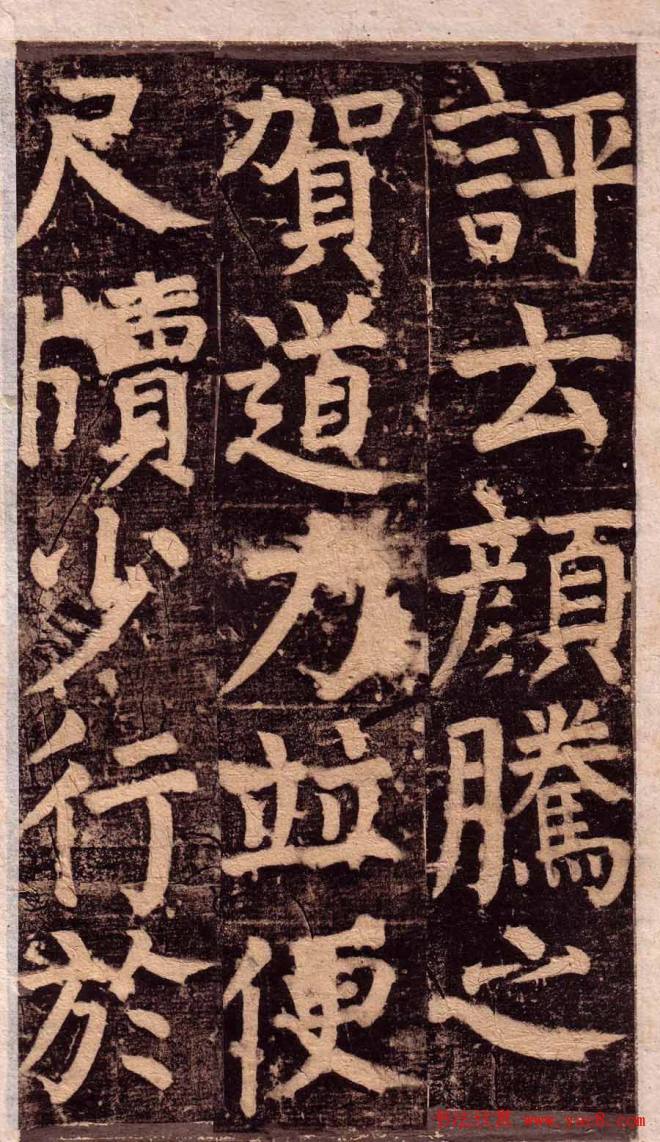 評去顏騰之
賀道力並便
尺牘少行於
书法欣赏 www.yac8.com